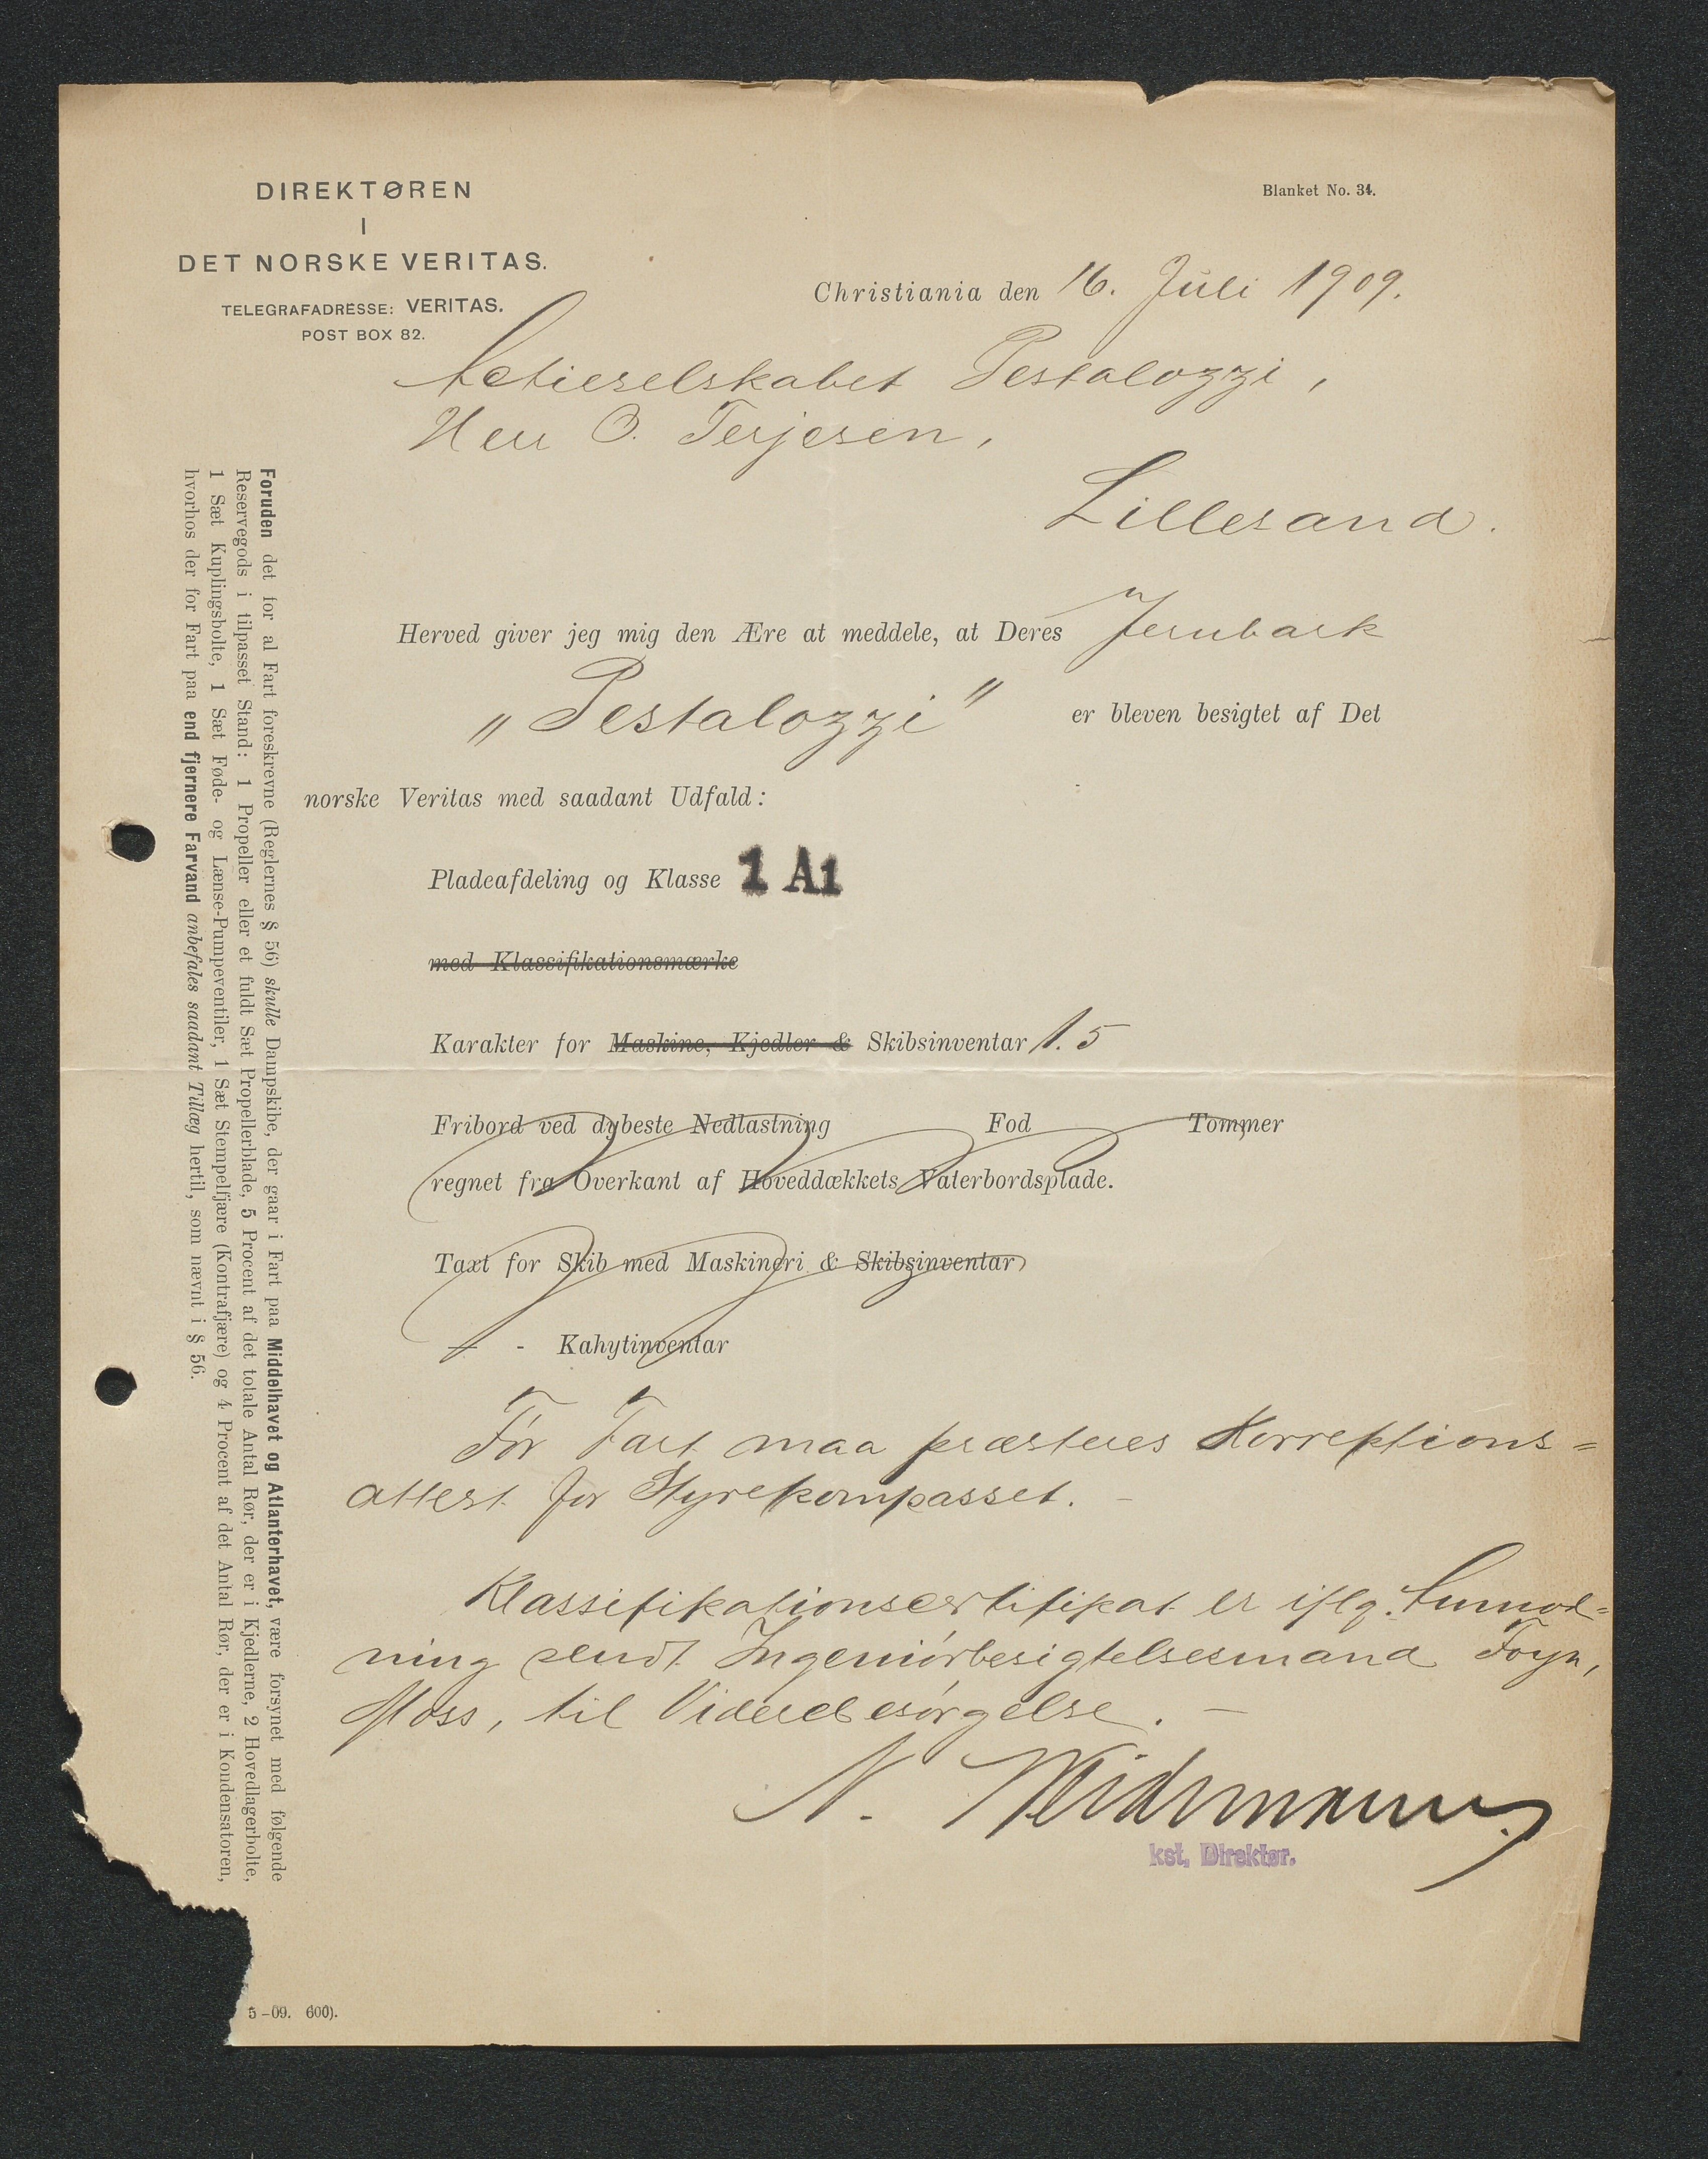 DIREKTØREN
I
DET NORSKE VERITAS.
TELEGRAFADRESSE: VERITAS.
POST BOX 82.
Blanket No. 34.
Christiania den 16. Juli 1909.
Actieselskabet Pestalozzi,
Herr O. Terjesen,
Lillesand.
Herved giver jeg mig den Ære at meddele, at Deres Jernbark
„Pestalozzi" er bleven besigtet af Det
norske Veritas med saadant Udfald:
Pladeafdeling og Klasse 1 A1
med Klassifikationsmærke
Karakter for Maskine, Kjedler & Skibsinventar 1.5
Fribord ved dybeste Nedlastning Fod Tommer
regnet fra Overkant af Hoveddækkets Vaterbordsplade.
Taxt for Skib med Maskineri & Skibsinventar
- - Kahytinventar
Før Fart maa præsteres Korrektions=
attest for Styrekompasset. –
Klassifikationscertifikat er iflg. Anmod=
ning sendt Ingeniørbesigtelsesmand Foyn,
Moss, til Viderebesørgelse. –
N.
kst, Direktør.
Foruden det for al Fart foreskrevne (Reglernes § 56) skulle Dampskibe, der gaar i Fart paa Middelhavet og Atlanterhavet, være forsynet med følgende
Reservegods i tilpasset Stand: 1 Propeller eller et fuldt Sæt Propellerblade, 5 Procent af det totale Antal Rør, der er i Kjedlerne, 2 Hovedlagerbolte,
1 Sæt Kuplingsbolte, 1 Sæt Føde- og Lænse-Pumpeventiler, 1 Sæt Stempelfjære (Kontrafjære) og 4 Procent af det Antal Rør, der er i Kondensatoren,
hvorhos der for Fart paa end fjernere Farvand anbefales saadant Tillæg hertil, som nævnt i § 56.
5-09. 600).